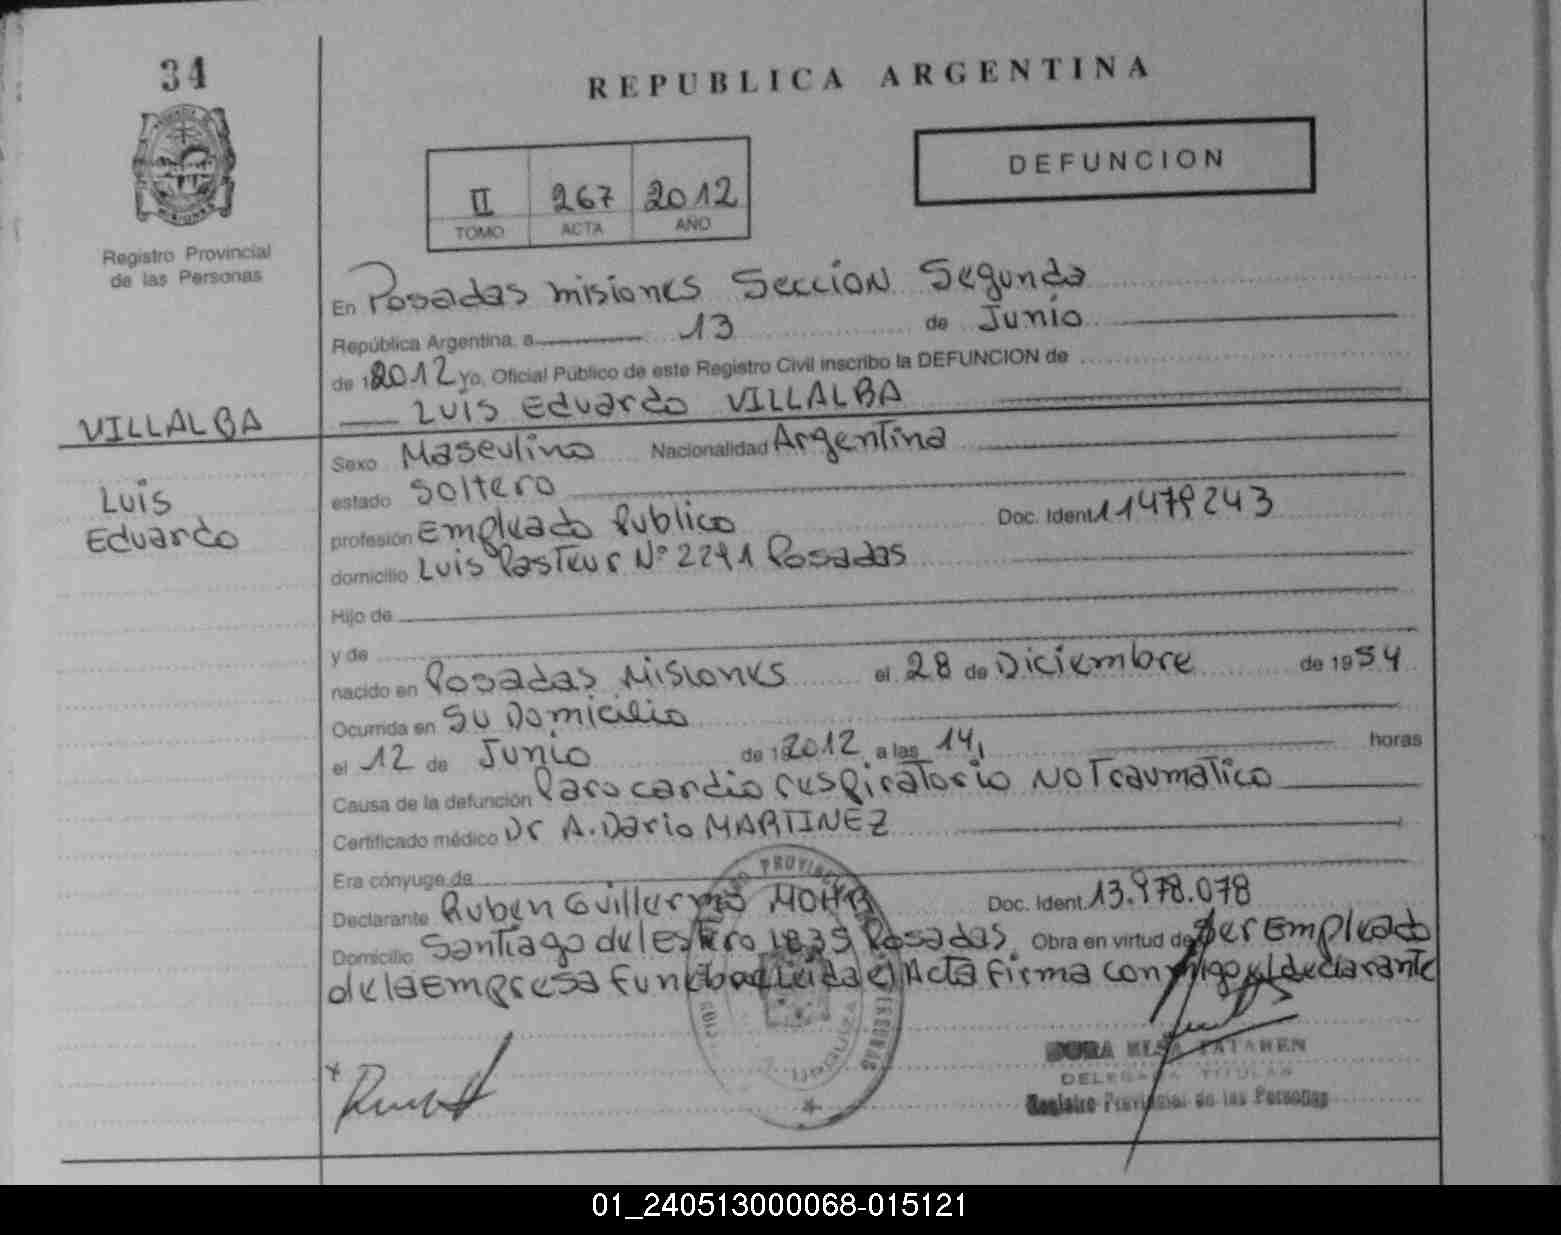 34
REPUBLICA ARGENTINA
DEFUNCION
II 267 2012
TOMO ACTA AÑO
Registro Provincial
de las Personas
En Posadas misiones Seccion Segunda
República Argentina, a 13 de Junio
de 1 2012 Yo, Oficial Público de este Registro Civil inscribo la DEFUNCION de
Luis Eduardo VILLALBA
VILLALBA
Luis
Eduardo
Sexo Masculino Nacionalidad Argentina
estado Soltero
profesión Empleado Publico Doc. Ident. 11479243
domicilio Luis Pasteur Nº 2241 Posadas
Hijo de
y de
nacido en Posadas Misiones el 28 de Diciembre de 1954
Ocurrida en Su Domicilio
el 12 de Junio de 1 2012 a las 14, horas
Causa de la defunción Paro cardio respiratorio No Traumatico
Certificado médico Dr A. Dario MARTINEZ
Era cónyuge de
Declarante Ruben Guillermo MOHR Doc. Ident. 13.978.078
Domicilio Santiago del Estero 1835 Posadas Obra en virtud de Ser Empleado
de la Empresa Funebre Leida el Acta Firma conmigo el declarante
DELEGADA TITULAR
Registro Provincial de las Personas
01_240513000068-015121